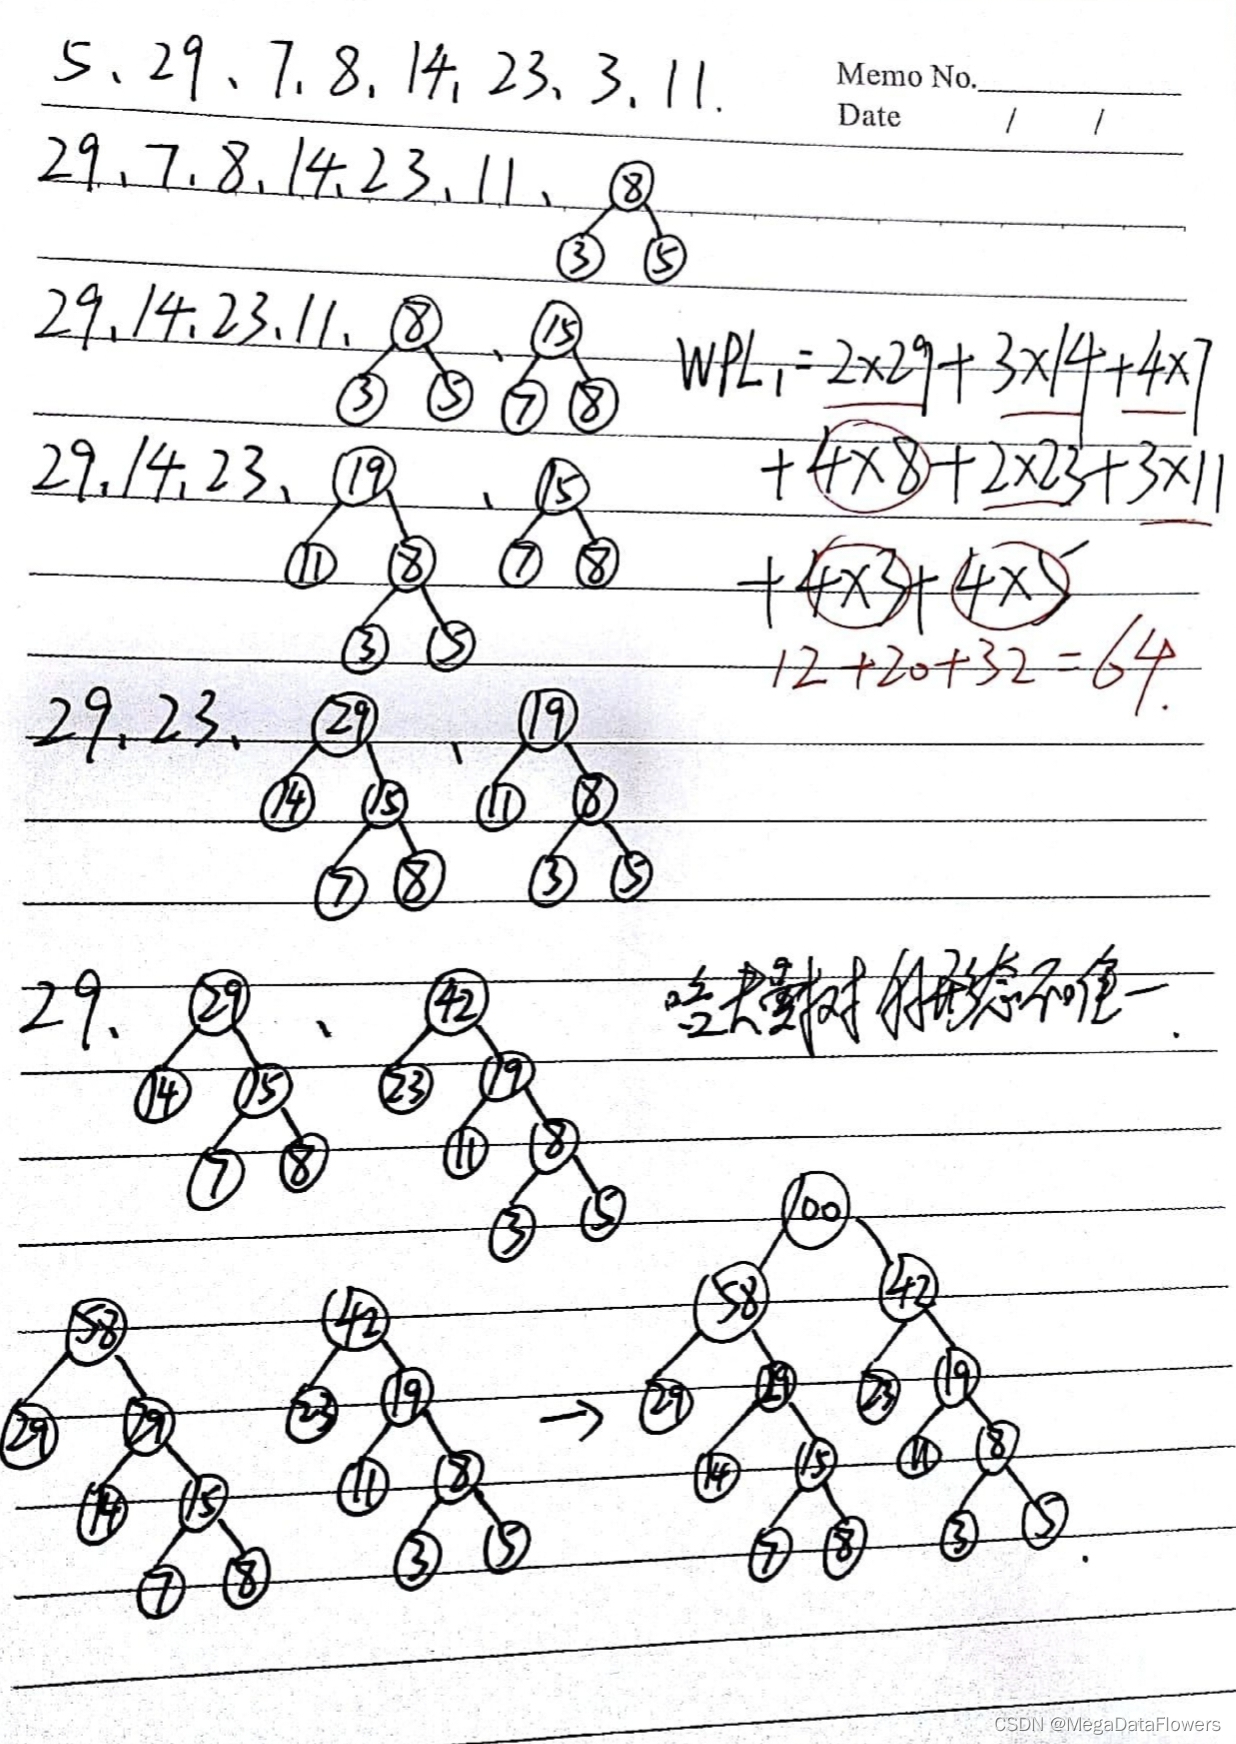 5、29、7、8、14、23、3、11.
Memo No.
Date / /
29、7、8、14、23、11、
8
3 5
29、14、23、11、
8 、 15
3 5 7 8
WPL₁=2×29+3×14+4×7
+4×8+2×23+3×11
+4×3+4×5
12+20+32=64.
29、14、23、
19 、 15
11 8 7 8
3 5
29、23、
29 、 19
14 15 11 8
7 8 3 5
29、
29 、 42
14 15 23 19
7 8 11 8
3 5
哈夫曼树的形态不唯一.
100
58 42 → 58 42
29 29 23 19 29 29 23 19
14 15 11 8 14 15 11 8
7 8 3 5 7 8 3 5 .
CSDN @MegaDataFlowers